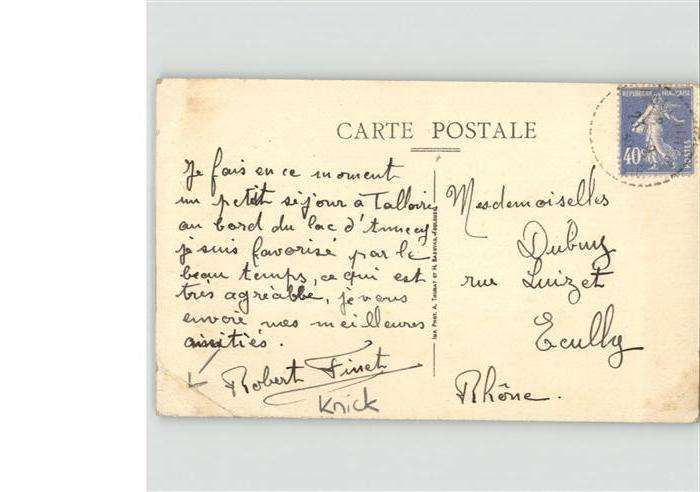 CARTE POSTALE
Je fais en ce moment
un petit séjour à Talloires
au bord du lac d'Annecy
je suis favorisé par le
beau temps, ce qui est
très agréable, je vous
envoie mes meilleures
amitiés.
Robert Finet
Knick
Mesdemoiselles
rue Luizet
Ecully
Rhône.
REPUBLIQUE FRANÇAISE
40c